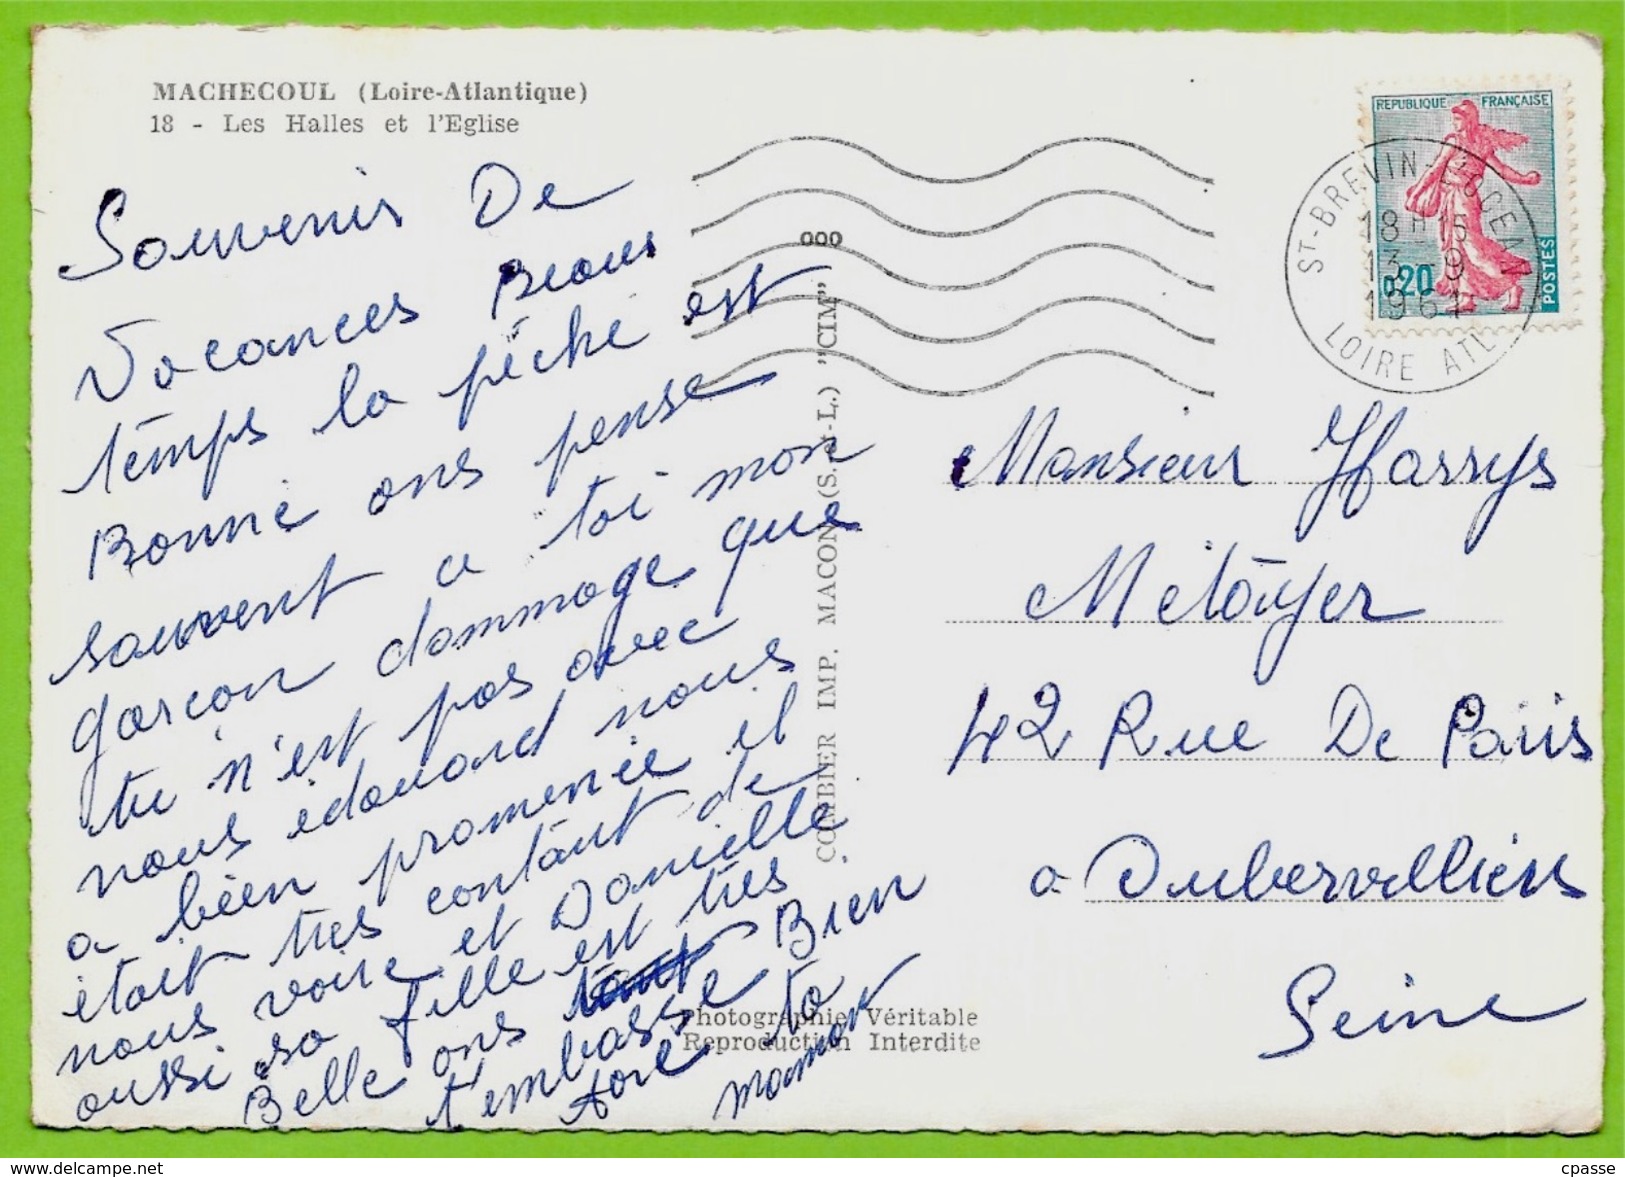 MACHECOUL (Loire-Atlantique)
18 - Les Halles et l'Eglise
Souvenir De
Vacances Beaus
temps la pêche est
Bonne ons pense
souvent a toi mon
garçon dommage que
tu n'est pas avec
nous édouard nous
a bien promenée et
était très contant de
nous voire et Danielle
aussi sa fille est très
Belle ons Bien
t'embasse
ta
maman
COMBIER IMP. MACON (S.-et-L.) "CIM"
Photographie Véritable
Reproduction Interdite
REPUBLIQUE FRANÇAISE
0,20
POSTES
ST-BREVIN-L'OCEAN
18 H 15
13 - 9
1961
LOIRE ATL.
Monsieur Harrys
Métoyer
42 Rue De Paris
a Aubervilliers
Seine
cpasse